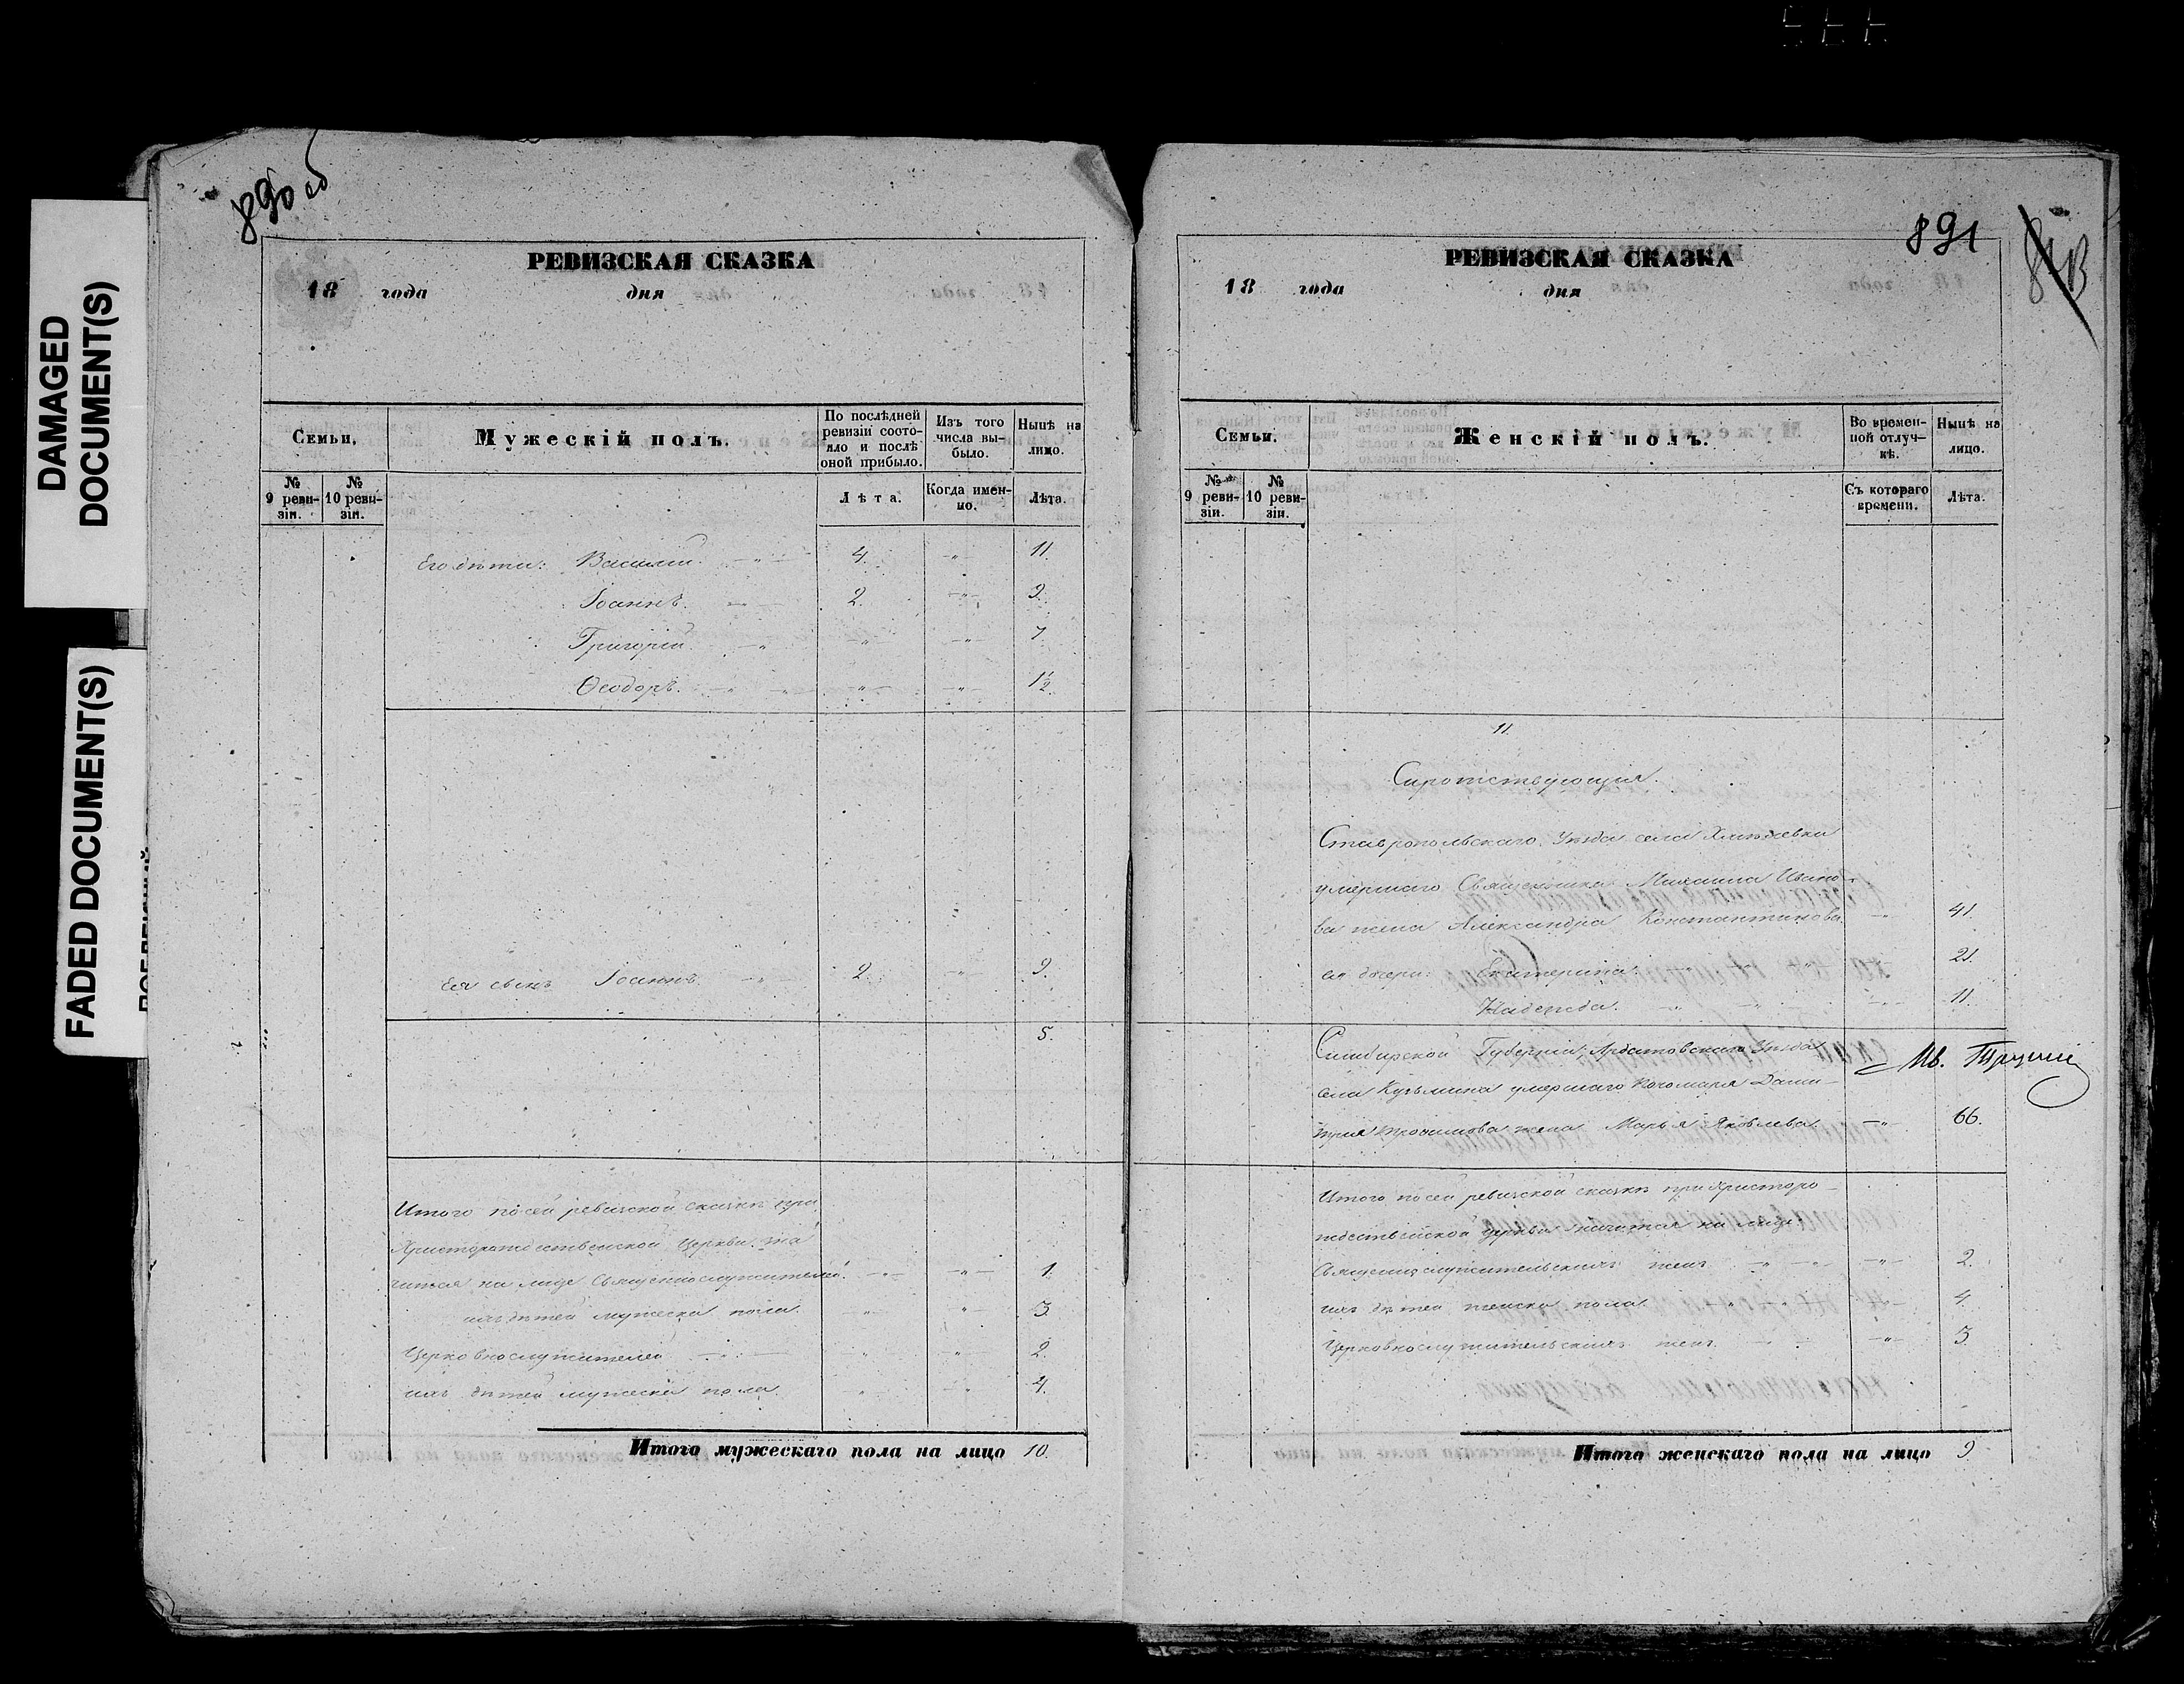 DAMAGED
DOCUMENT(S)
FADED DOCUMENT(S)
890 об
РЕВИЗСКАЯ СКАЗКА
18 года дня
Семьи,
Мужескій полъ.
По послѣдней ревизіи состояло и послѣ оной прибыло.
Изъ того числа выбыло.
Нынѣ на лицо.
№ 9 ревизіи.
№ 10 ревизіи.
Лѣта.
Когда именно.
Лѣта.
Его дѣти: Василій. — „ — 4. — „ — 11.
Іоаннъ. 2. — „ — 9.
Григорій. — „ — „ — 7.
Ѳеодоръ. — „ — „ — „ — 1½.
Ея сынъ Іоаннъ. — „ 2. — „ — 9.
5.
Итого по сей ревизской сказкѣ при
Христорождественской Церкви зна
чится на лицѣ Священнослужителей. — „ — „ — 1.
ихъ дѣтей мужеска пола. „ „ 3.
Церковнослужителей — „ — „ „ 2.
ихъ дѣтей мужеска пола. „ „ 4.
Итого мужескаго пола на лицо 10.
891
РЕВИЗСКАЯ СКАЗКА
18 года дня
Семьи.
Женскій полъ.
Во временной отлучкѣ.
Нынѣ на лицо.
№ 9 ревизіи.
№ 10 ревизіи.
Съ котораго времени.
Лѣта.
11.
Сиротствующія.
Ставропольскаго Уѣзда села
умершаго Священника Михаила Ивано-
ва жена Александра Константинова. — „ 41.
ея дочери: Екатерина. 21.
Надежда. — „ — 11.
Симбирской Губерніи, Ардатовскаго Уѣзда
села Кузьмина умершаго Пономаря Дими-
трія жена Марья Яковлева. — „ — 66.
Итого по сей ревизской сказкѣ при Христоро-
ждественской церкви значится на лицѣ
Священнослужительскихъ женъ — „ — „ — „ — 2.
ихъ дѣтей женска пола. „ „ 4.
Церковнослужительскихъ женъ. — „ — 3.
Итого женскаго пола на лицо 9